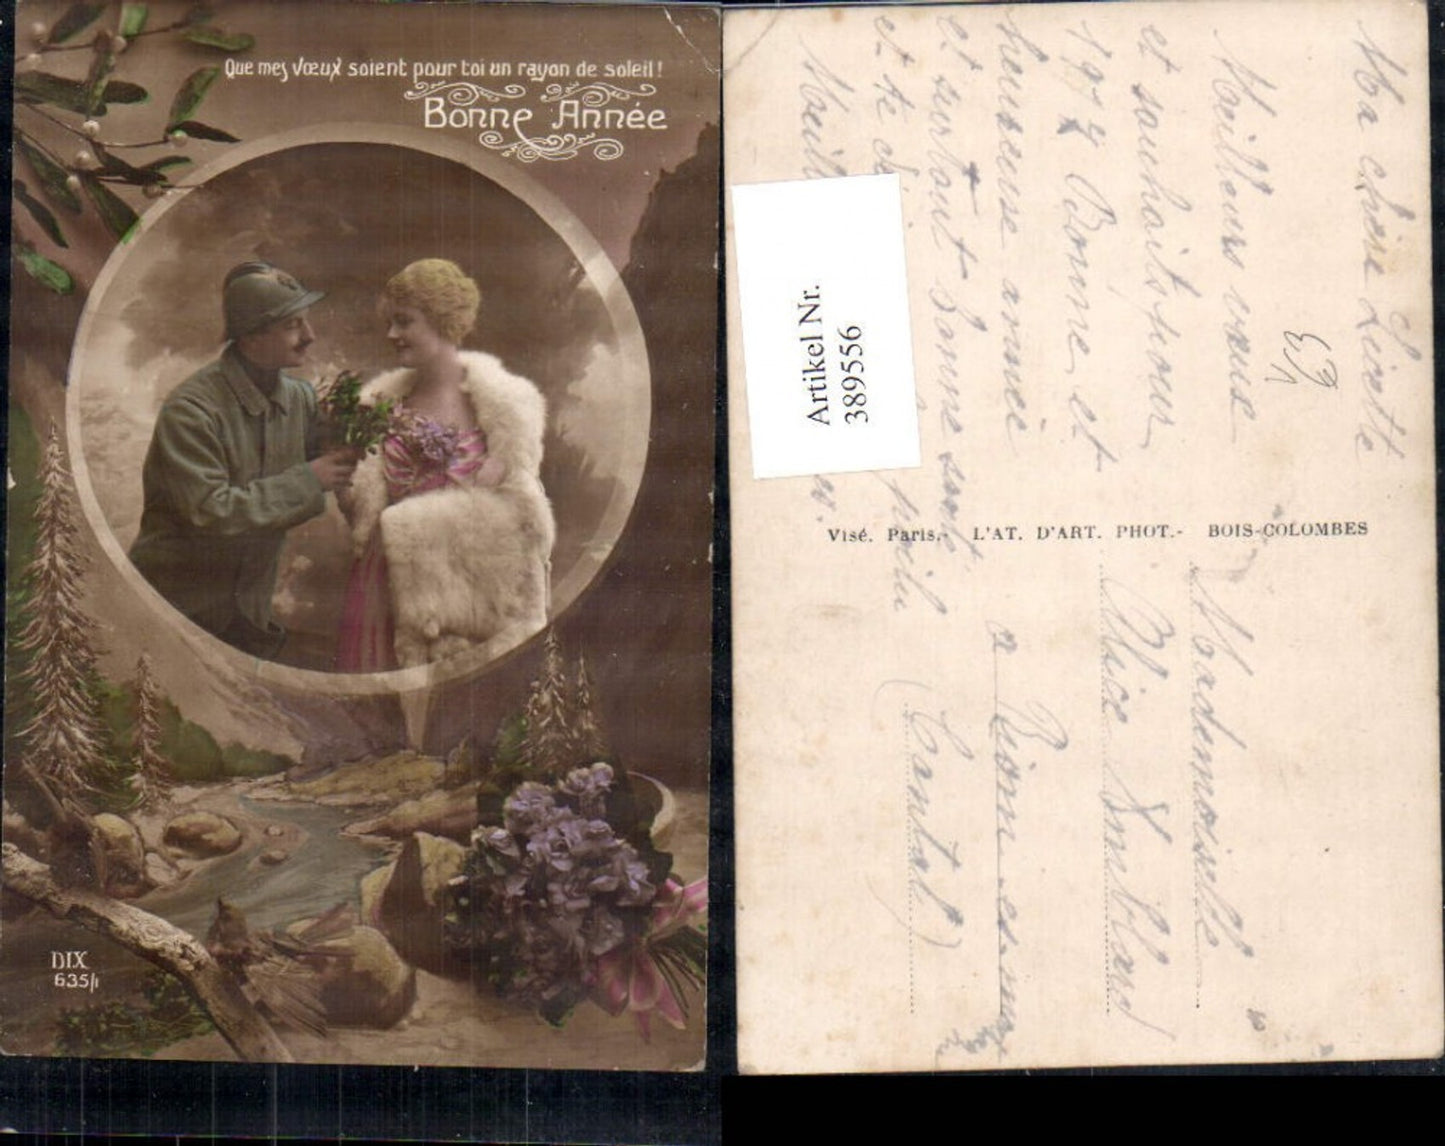 Que mes Vœux soient pour toi un rayon de soleil !
Bonne Année
DIX
635/1
Artikel Nr.
389556
Ma chère Lisette
Meilleurs vœux
et souhaits pour
Bonne et
heureuse année
et surtout bonne santé
et te
Visé. Paris.- L'AT. D'ART. PHOT.- BOIS-COLOMBES
Mademoiselle
Alice
a Riom-es-
(Cantal)